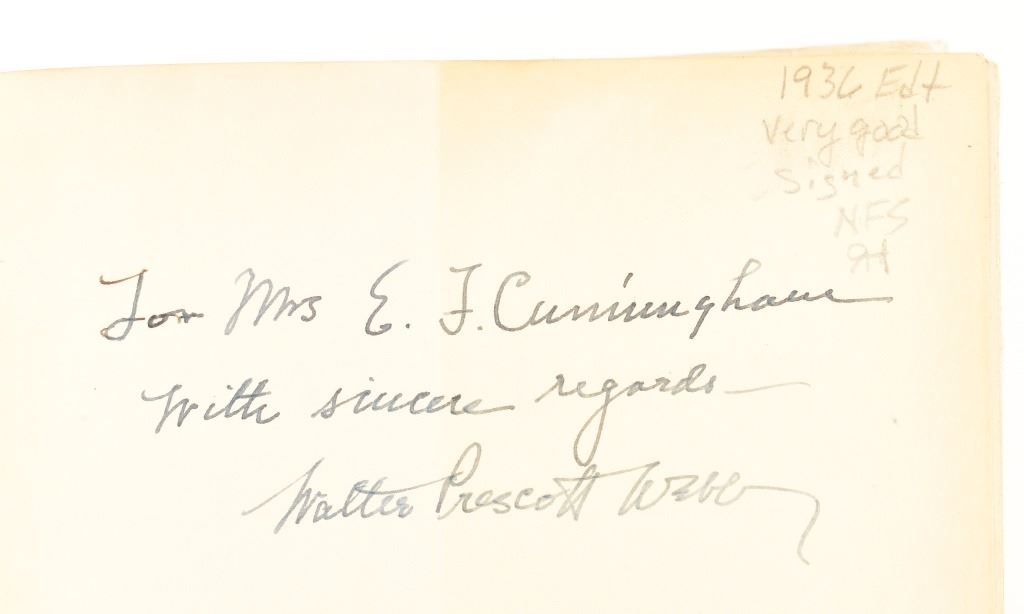 1936 Edt
very good
signed
NFS
For Mrs E. F. Cunningham
With sincere regards—
Walter Prescott Webb